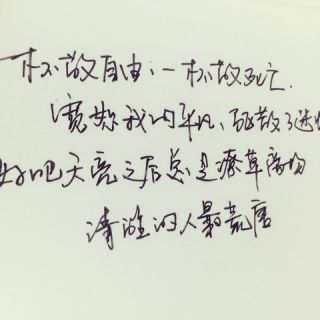 一杯敬自由、一杯敬死亡.
宽恕我的平凡、驱散了迷
好吧天亮之后总是潦草离场
清醒的人最荒唐